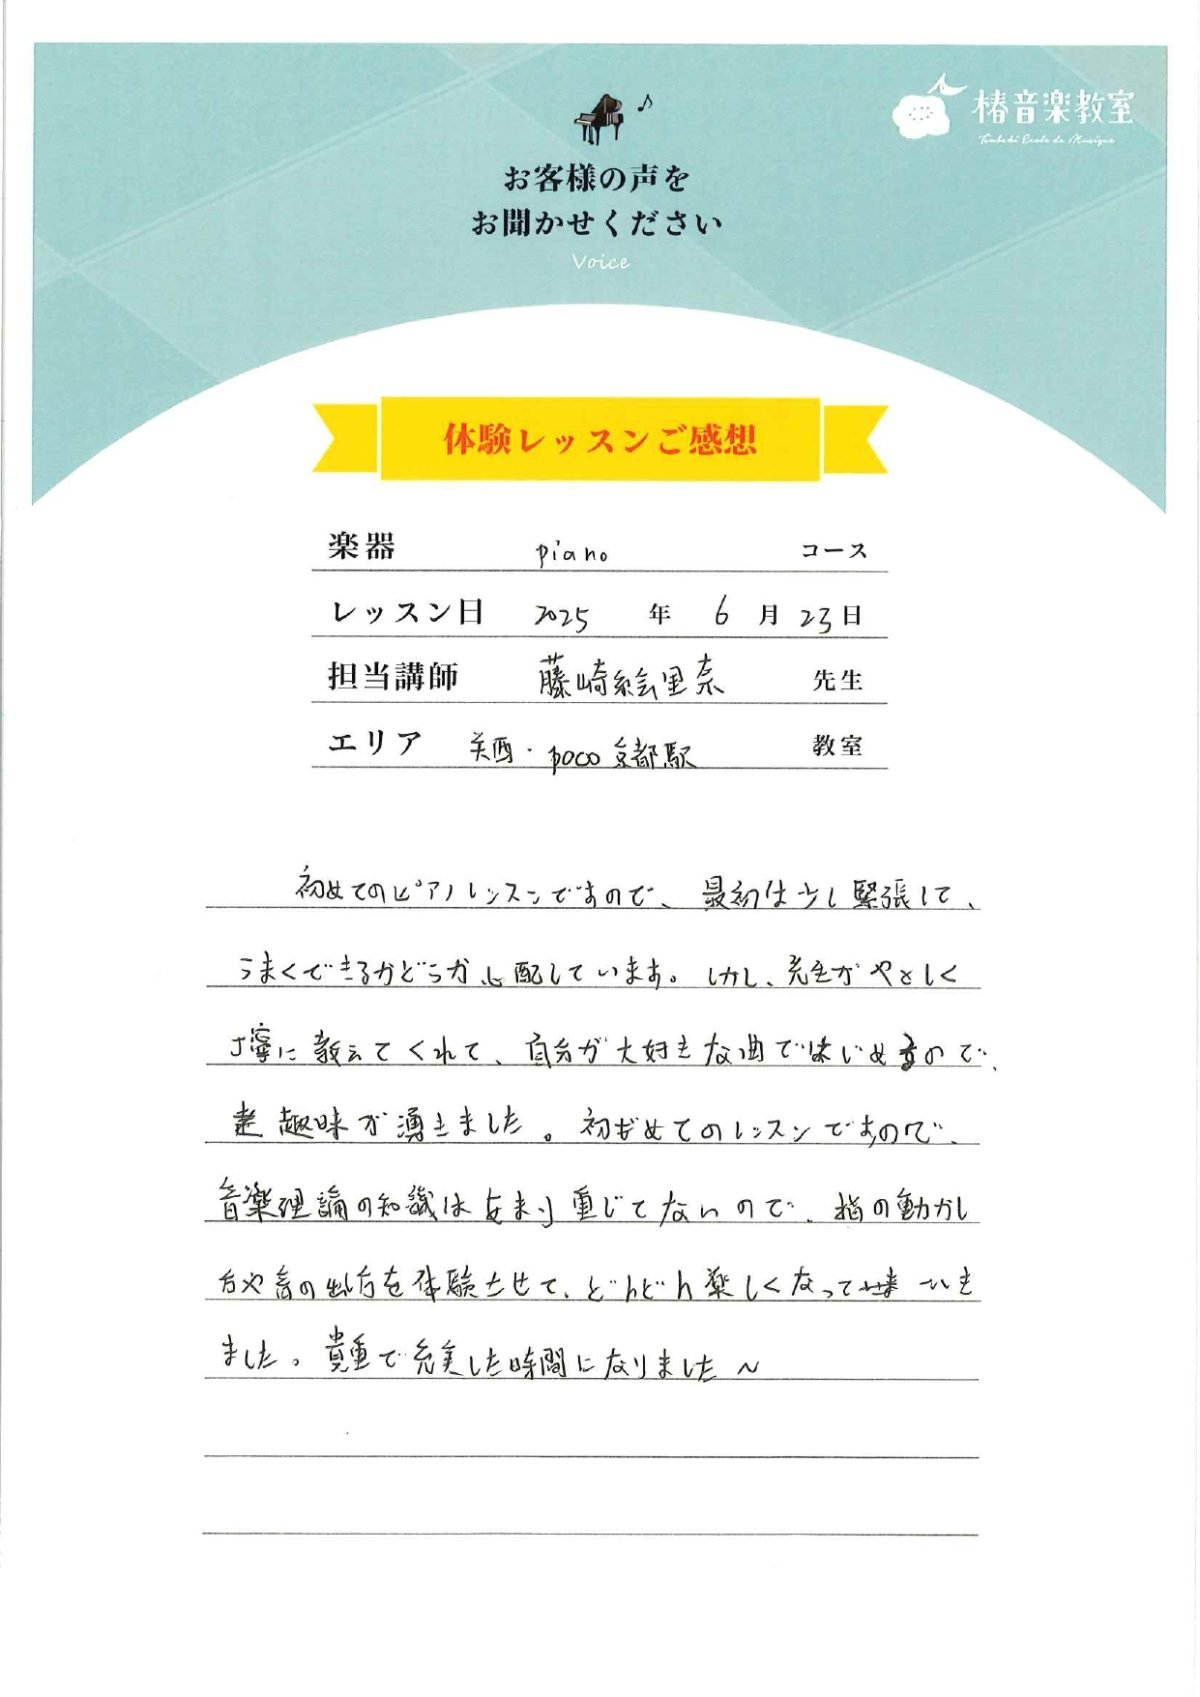 椿音楽教室
Tsubaki Ecole de Musique
お客様の声を
お聞かせください
Voice
体験レッスンご感想
楽器 piano コース
レッスン日 2025 年 6 月 23 日
担当講師 藤崎絵里奈 先生
エリア 関西・poco 京都駅 教室
初めてのピアノレッスンですので、最初は少し緊張して、
うまくできるかどうか心配しています。しかし、先生がやさしく
丁寧に教えてくれて、自分が大好きな曲ではじめるので、
趣味が湧きました。初めてのレッスンですので、
音楽理論の知識はあまり重じてないので、指の動かし
方や音の出し方を体験させて、どんどん楽しくなって いき
ました。貴重で充実した時間になりました~